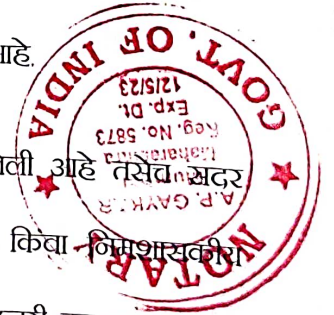 आहे.
आहे तसेच सदर
किंवा निमशासकीय
NOTAR
GOVT. OF INDIA
A.P. GAYKAR
Maharashtra
Reg. No. 5873
Exp. Dt.
12/5/23